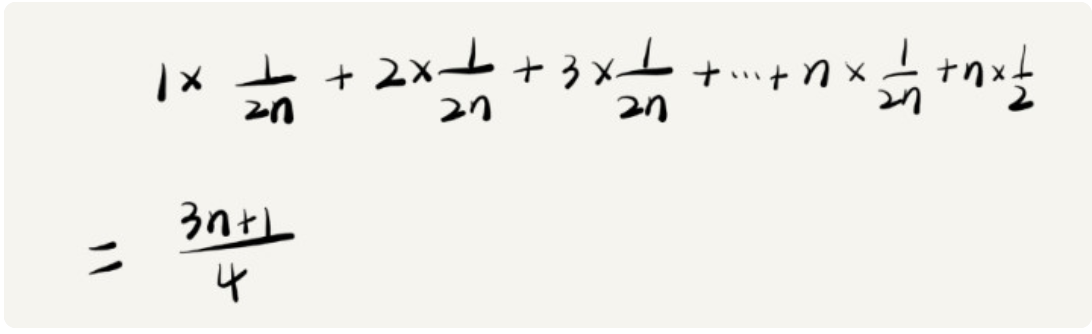 1× 1/2n + 2× 1/2n + 3× 1/2n + ⋯ + n × 1/2n + n× 1/2
= 3n+1/4